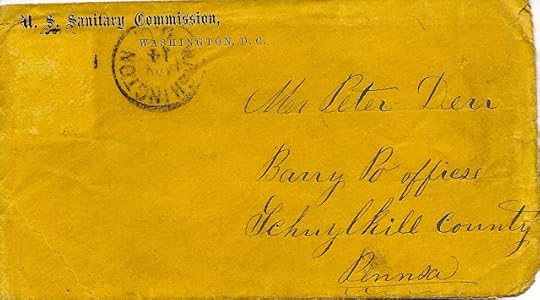 U. S. Sanitary Commission,
WASHINGTON, D. C.
WASHINGTON
NOV
14
Mr Peter Derr
Barry Po officese
Schuylkill County
Pennsa